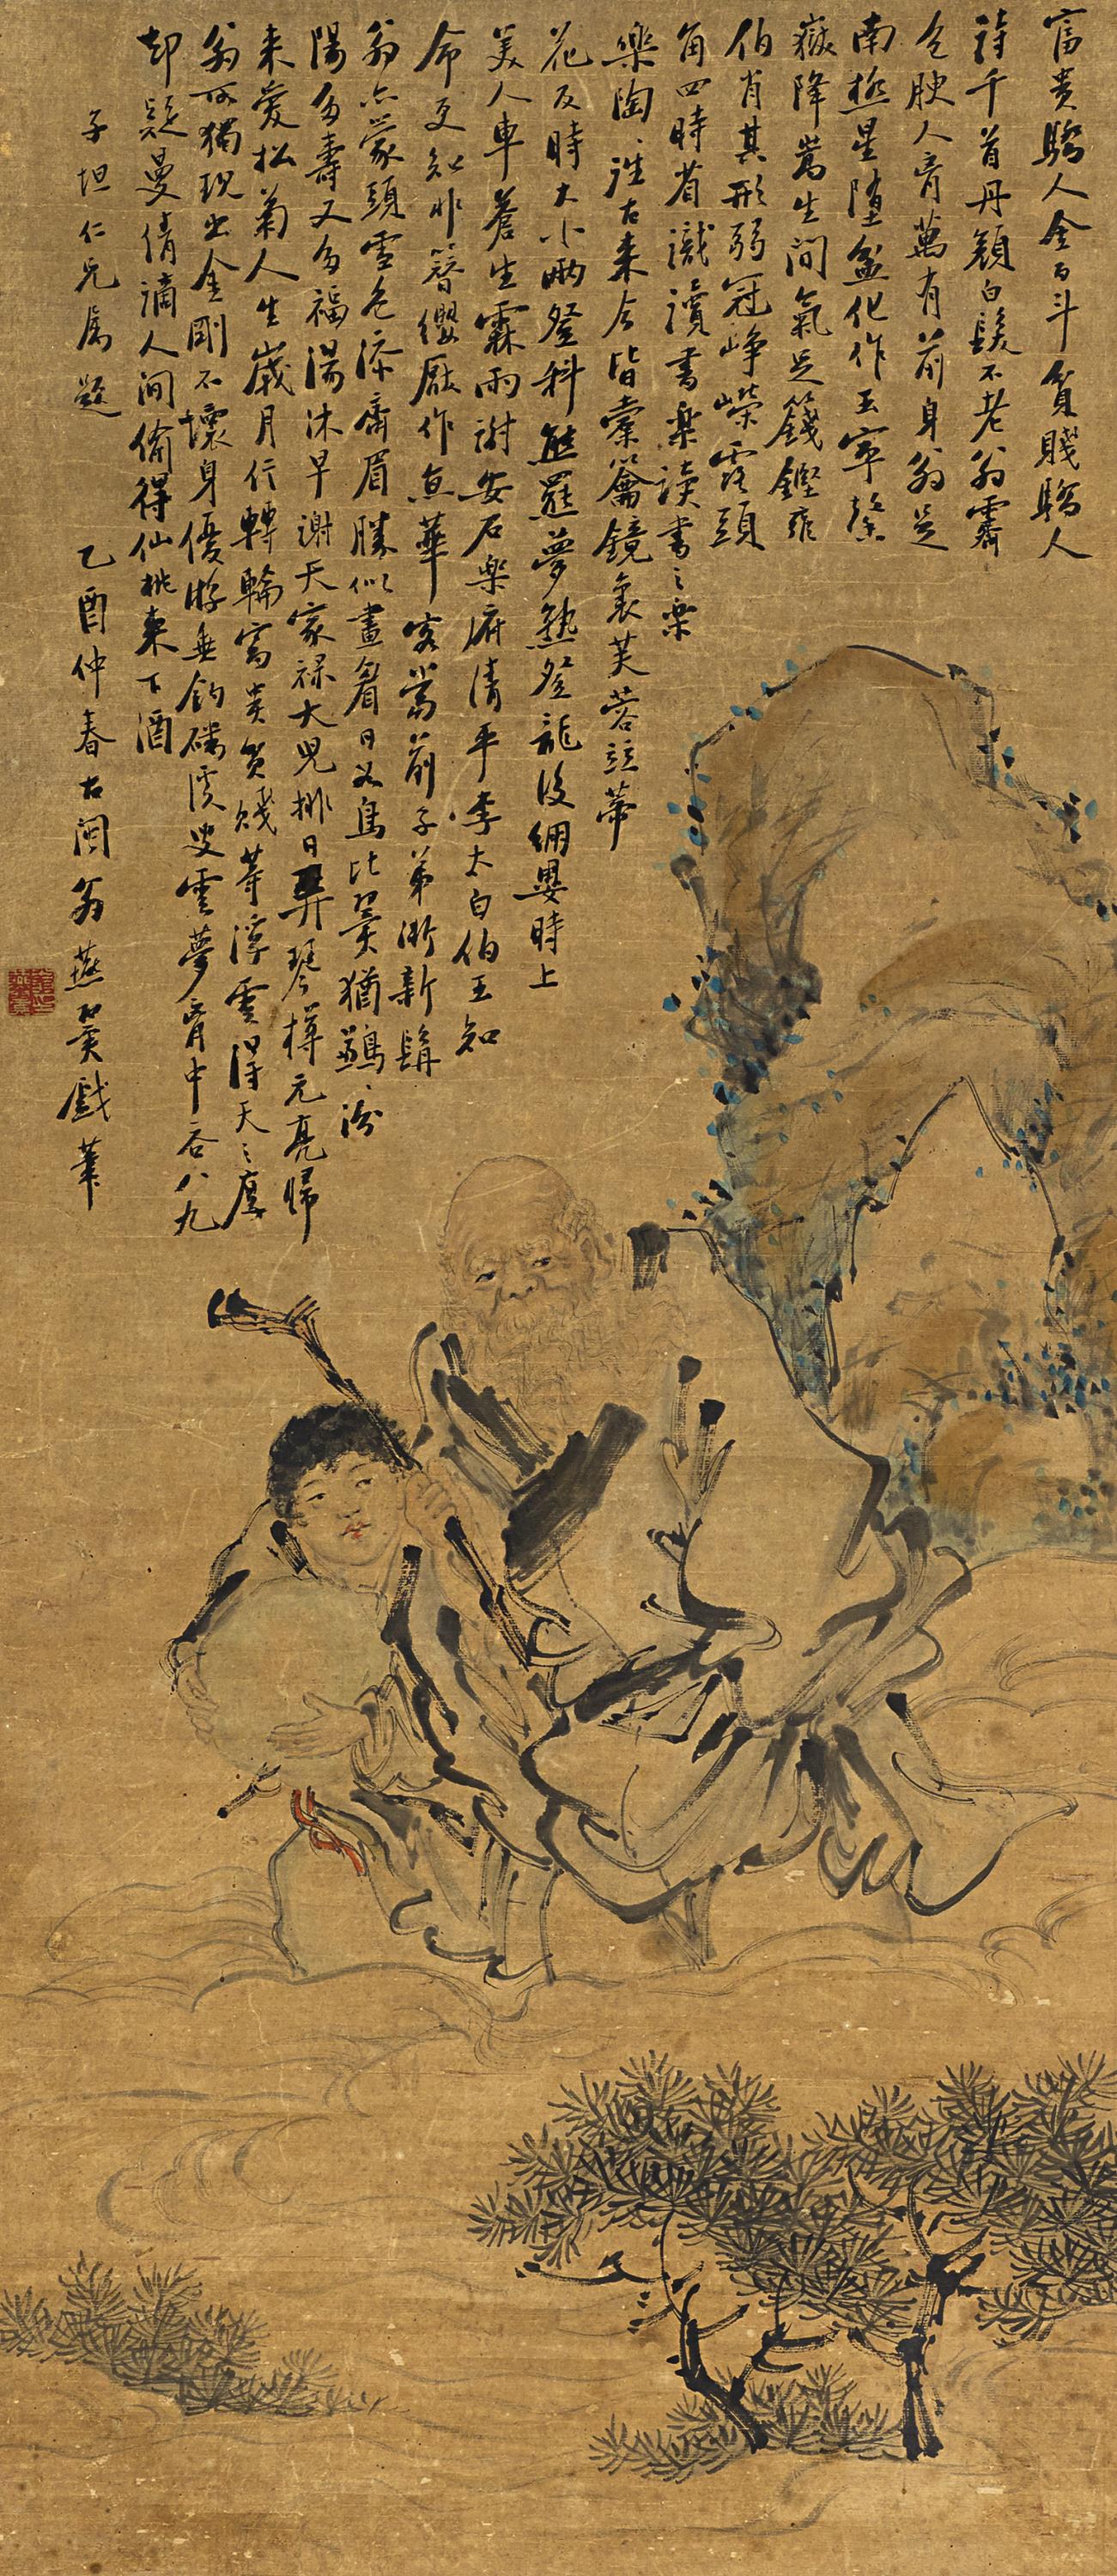 富貴驕人金百斗貧賤驕人
詩千首丹顏白髮不老翁霽
色腴人育萬有前身翁是
南極星墮盆化作玉宰馨
嶽降嵩生間氣足籛鏗雍
伯肖其形弱冠崢嶸露頭
角四時省識讀書樂讀書〻樂
樂陶〻誰古来今皆橐籥鏡裏芙蓉竝蒂
花及時大小兩登科熊羆夢熟登龍後綳嬰時上
美人車蒼生霖雨謝安石樂府清平李太白伯玉知
命更知非簪纓厭作京華客當前子弟漸新髯
翁亦蒙頭雪色添齊眉勝似畫眉日好鳥比翼猶鶼〻汾
陽多壽又多福湯沐早謝天家祿大兒排日弄琴樽元亮歸
来愛松菊人生歲月行轉輪富貴貧賤等浮雲得天〻厚
翁所獨現出金剛不壞身優游垂釣磻溪叟雲夢胷中吞八九
却疑曼倩謫人間偷得仙桃来下酒
子坦仁兄屬題
乙酉仲春古閩翁燕翼戲筆